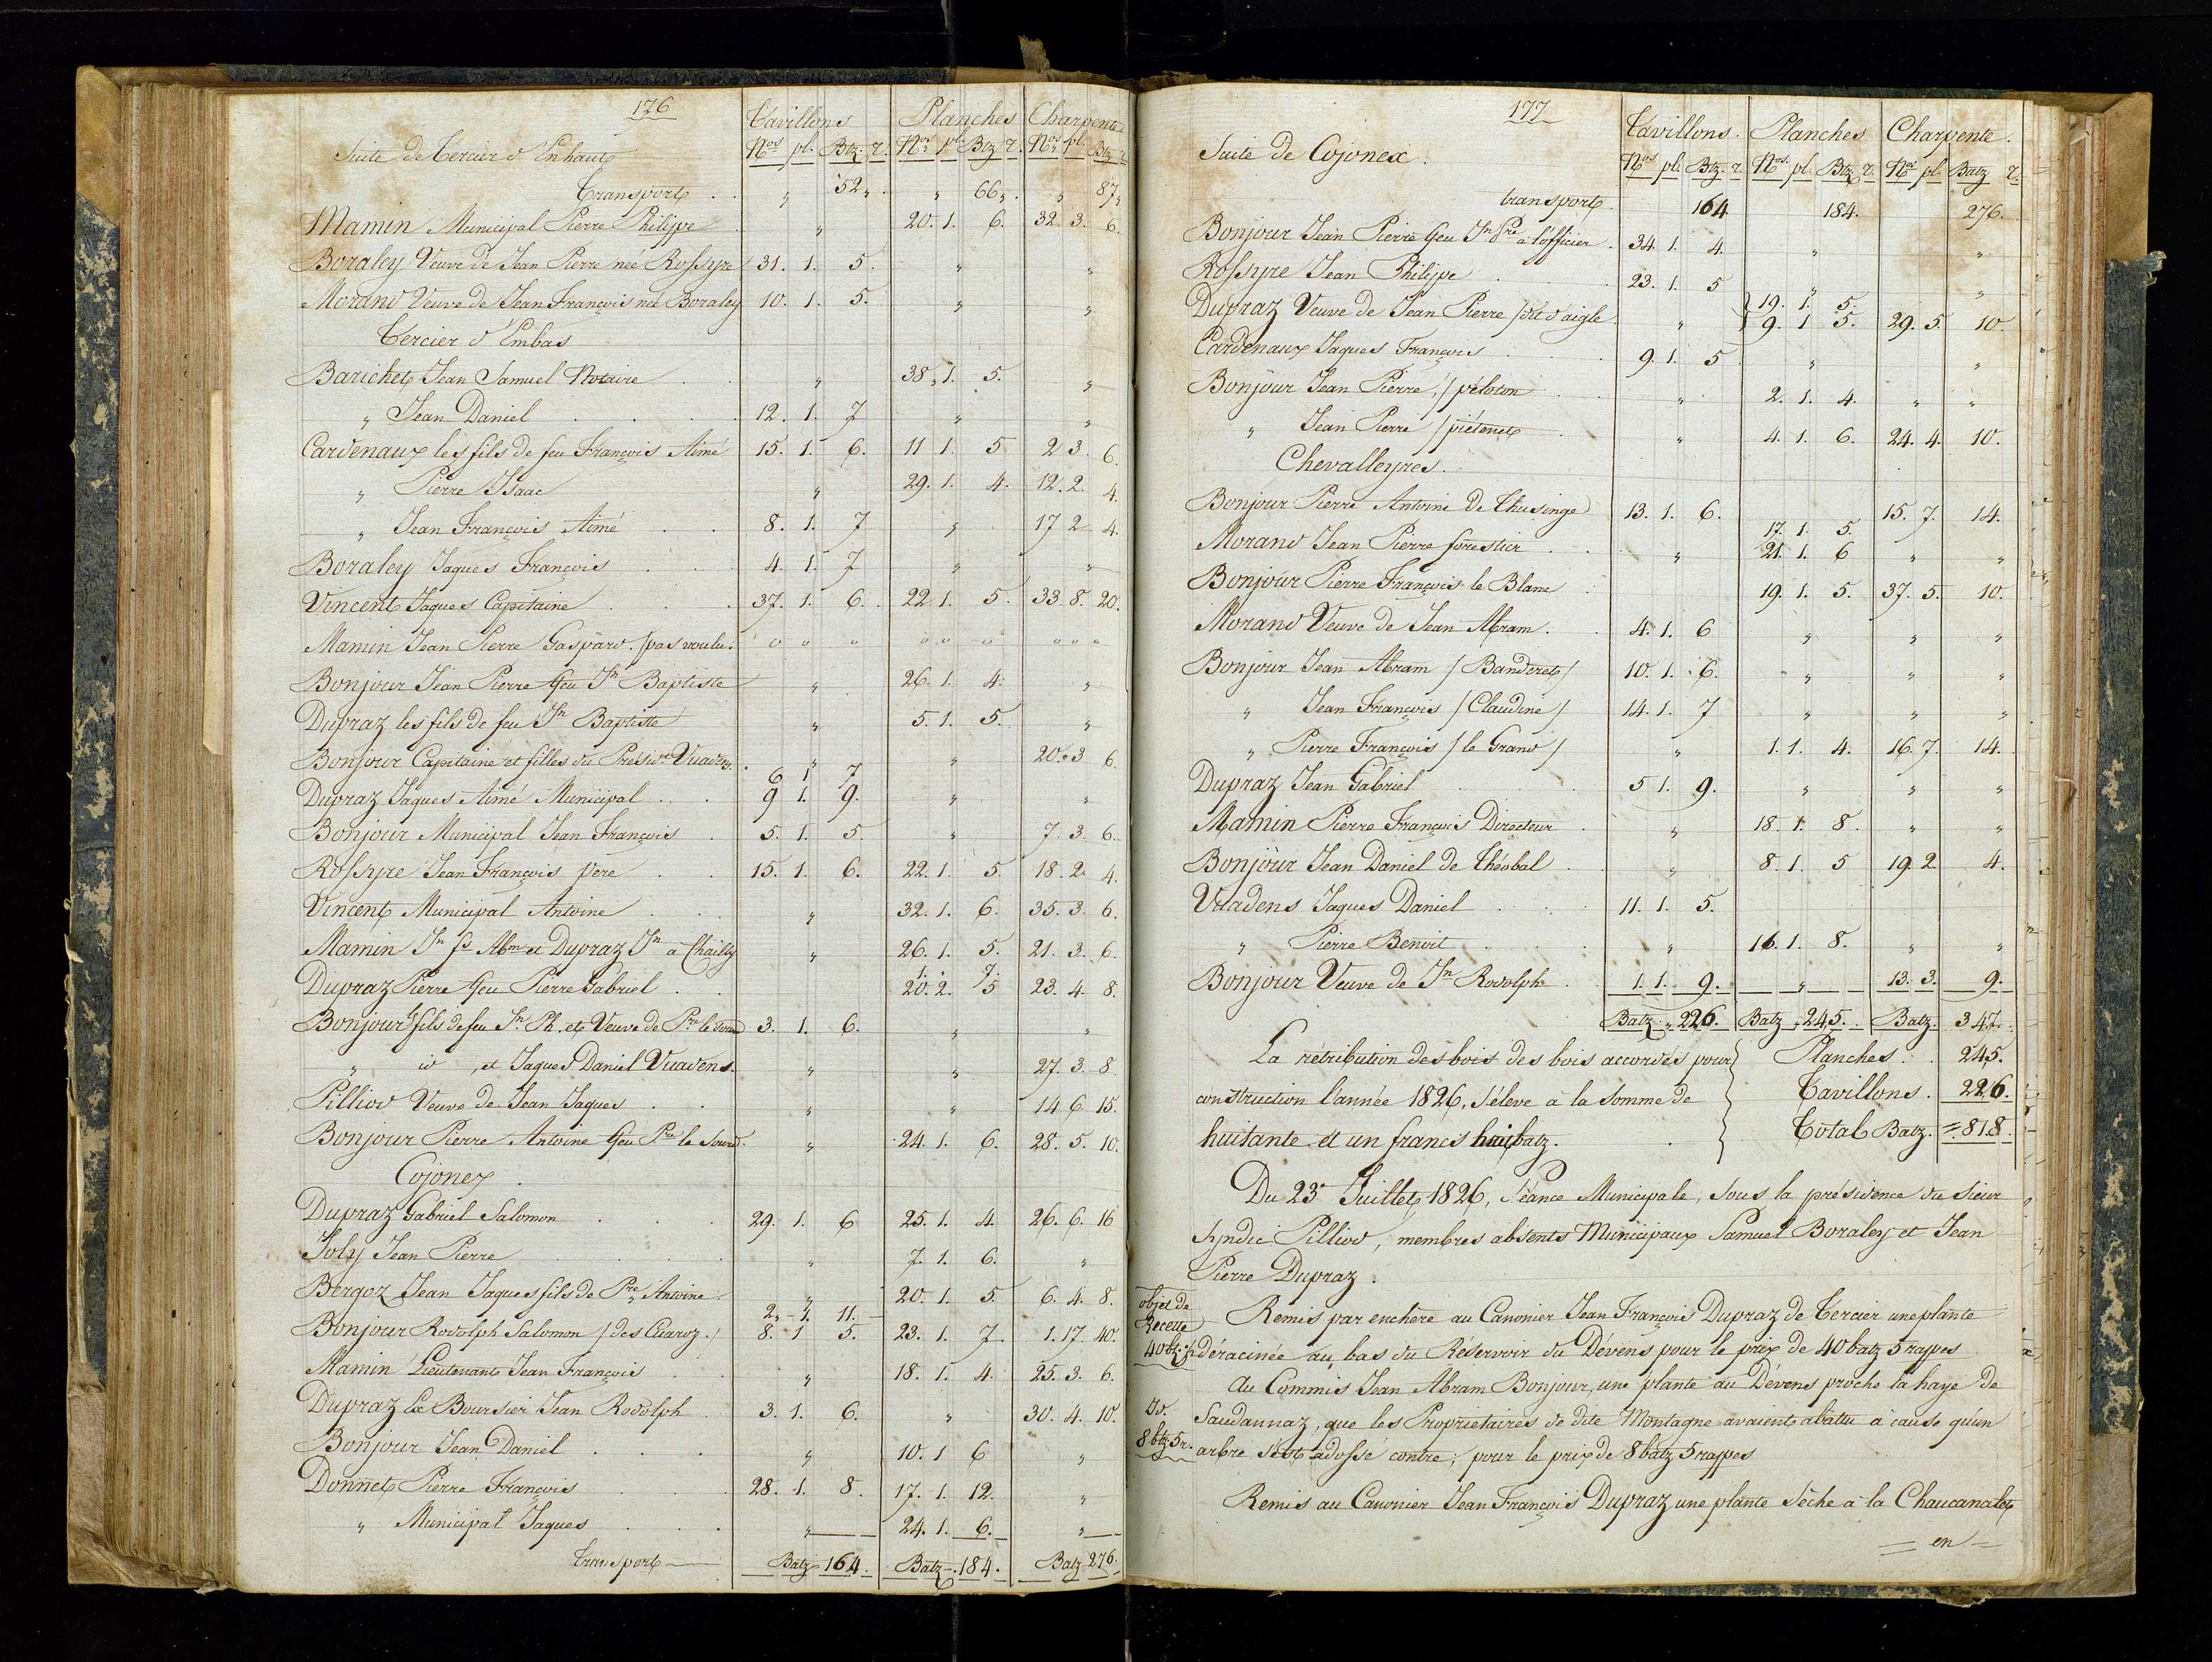 176
Tavillons Planches Charpente
Suite de Tercier d'Enhaut Nos pl. Btz. r. Nos pl. Btz r. Nos pl. Btz r.
Transport . . „ 52 „ . „ 66 „ . „ 87 „
Mamin Municipal Pierre Philippe . „ 20. 1. 6. 32. 3. 6.
Boraley Veuve de Jean Pierre née Rossyre 31. 1. 5. „ „
Morand Veuve de Jean François née Boraley 10. 1. 5. „ „
Tercier d'Embas
Barichet Jean Samuel Notaire . . „ 38 „ 1. 5. „
„ Jean Daniel . . . . . 12. 1. 7 „ „
Cardenaux les fils de feu François Aimé 15. 1. 6. 11 1. 5 2 3. 6.
„ Pierre Isaac „ 29. 1. 4. 12. 2. 4.
„ Jean François Aimé . . 8. 1. 7 „ 17 2 4.
Boraley Jaques François . . . 4. 1. 7 „ „
Vincent Jaques Capitaine . . . 37. 1. 6. 22 1. 5. 33. 8. 20.
Mamin Jean Pierre Gaspard. /pas voulu. o o o o o o o o o
Bonjour Jean Pierre feu Jn Baptiste „ 26. 1. 4. „
Dupraz les fils de feu Jn Baptiste „ 5. 1. 5. „
Bonjour Capitaine et filles du Présidt Vuadens. . „ „ 20. 3 6.
6 1 7
Dupraz Jaques Aimé Municipal . . . 9 1. 9. „ „
Bonjour Municipal Jean François . 5. 1. 5. „ 7. 3. 6.
Rossyre Jean François père . . 15. 1. 6. 22. 1. 5. 18. 2. 4.
Vincent Municipal Antoine . . . „ 32. 1. 6. 35. 3. 6.
Mamin Jn fs Abm et Dupraz Jn à Chailly „ 26. 1. 5. 21. 3. 6.
1. 7.
Dupraz Pierre feu Pierre Gabriel . . 20. 2. 5 23. 4. 8.
Bonjour fils de feu Jn Ph. et Veuve de Pre le Sourd 3. 1. 6. „ „
„ id , et Jaques Daniel Vuadens. „ „ 27. 3. 8
Pilliod Veuve de Jean Jaques . . „ „ 14 6. 15.
Bonjour Pierre Antoine feu Pre le Sourd. „ 24. 1. 6. 28. 5. 10.
Cojonex .
Dupraz Gabriel Salomon . . . 29. 1. 6 25. 1. 4. 26. 6. 16
Joly Jean Pierre . . . . . „ 7. 1. 6. „
Bergoz Jean Jaques fils de Pre Antoine „ 20. 1. 5. 6. 4. 8.
2. 1. 11.
Bonjour Rodolph Salomon /des Cuaroz./ 8. 1 5. 23. 1. 7 1. 17. 40.
Mamin Lieutenant Jean François . . „ 18. 1. 4. 25. 3. 6.
Dupraz le Boursier Jean Rodolph . 3. 1. 6. „ 30. 4. 10.
Bonjour Jean Daniel . . . . „ 10. 1 6 „
Donnet Pierre François . . . 28. 1. 8. 17. 1. 12. „
„ Municipal Jaques . . . „ 24. 1. 6. „
Transport Batz 164. Batz 184. Batz 276.
177
Tavillons. Planches Charpente.
Suite de Cojonex. Nos pl. Btz. r. Nos. pl. Btz. r. Nos pl. Batz r.
transport. 164 184. 276.
Bonjour Jean Pierre feu Jn Pre à l'officier. 34. 1. 4. „ „
Rossyre Jean Philippe . . . 23. 1. 5 „ „
19. 1. 5.
Dupraz Veuve de Jean Pierre /dit d'aigle. „ 9. 1 5. 29. 5. 10.
Cardenaux Jaques François . . . 9. 1. 5. „ „
Bonjour Jean Pierre, /péloton . . „ 2. 1. 4. „ „
„ Jean Pierre /piétenet . „ 4. 1. 6. 24. 4. 10.
Chevalleyres.
Bonjour Pierre Antoine de Thusinge 13. 1. 6. 15. 7. 14.
17. 1. 5.
Morand Jean Pierre forestier . . „ 21. 1. 6 „ „
Bonjour Pierre François le Blanc . 19. 1. 5. 37. 5. 10.
Morand Veuve de Jean Abram. . 4. 1. 6 „ „ „
Bonjour Jean Abram /Banderet/ 10. 1. 6. „ „ „
„ Jean François /Claudine/ 14. 1. 7 „ „ „
„ Pierre François /le Grand/ „ 1. 1. 4. 16. 7. 14.
Dupraz Jean Gabriel . . . . 5 1. 9. „ „ „
Mamin Pierre François Directeur . „ 18. 1. 8. „ „
Bonjour Jean Daniel de Théobal . . „ 8. 1. 5 19. 2. 4.
Vuadens Jaques Daniel . . . 11. 1. 5.
„ Pierre Benoit . . . . „ 16. 1. 8. „ „
Bonjour Veuve de Jn Rodolph . . 1. 1. 9. „ 13. 3. 9.
Batz. „ 226. Batz „ 245. Batz. 347.
La rétribution des bois des bois accordés pour Planches . 245.
construction l'année 1826, s'élève à la somme de Tavillons. 226.
huitante et un francs huit batz. . Total Batz. = 818.
Du 23e Juillet 1826, Séance Municipale, sous la présidence du sieur
Syndic Pilliod, membres absents Municipaux Samuel Boraley et Jean
Pierre Dupraz.
objet de
Recette
40 bz. 5 r.
Remis par enchère au Canonier Jean François Dupraz de Tercier une plante
déracinée au bas du Réservoir du Dévens pour le prix de 40 batz 5 rappes
Au Commis Jean Abram Bonjour, une plante au Dévens proche la haye de
Do.
8 btz 5 r.
Saudannaz, que les Propriétaires de dite Montagne avaient abattu à cause qu'un
arbre s'est adossé contre; pour le prix de 8 batz 5 rappes
Remis au Canonier Jean François Dupraz une plante sèche à la Chaucanalet
= en =